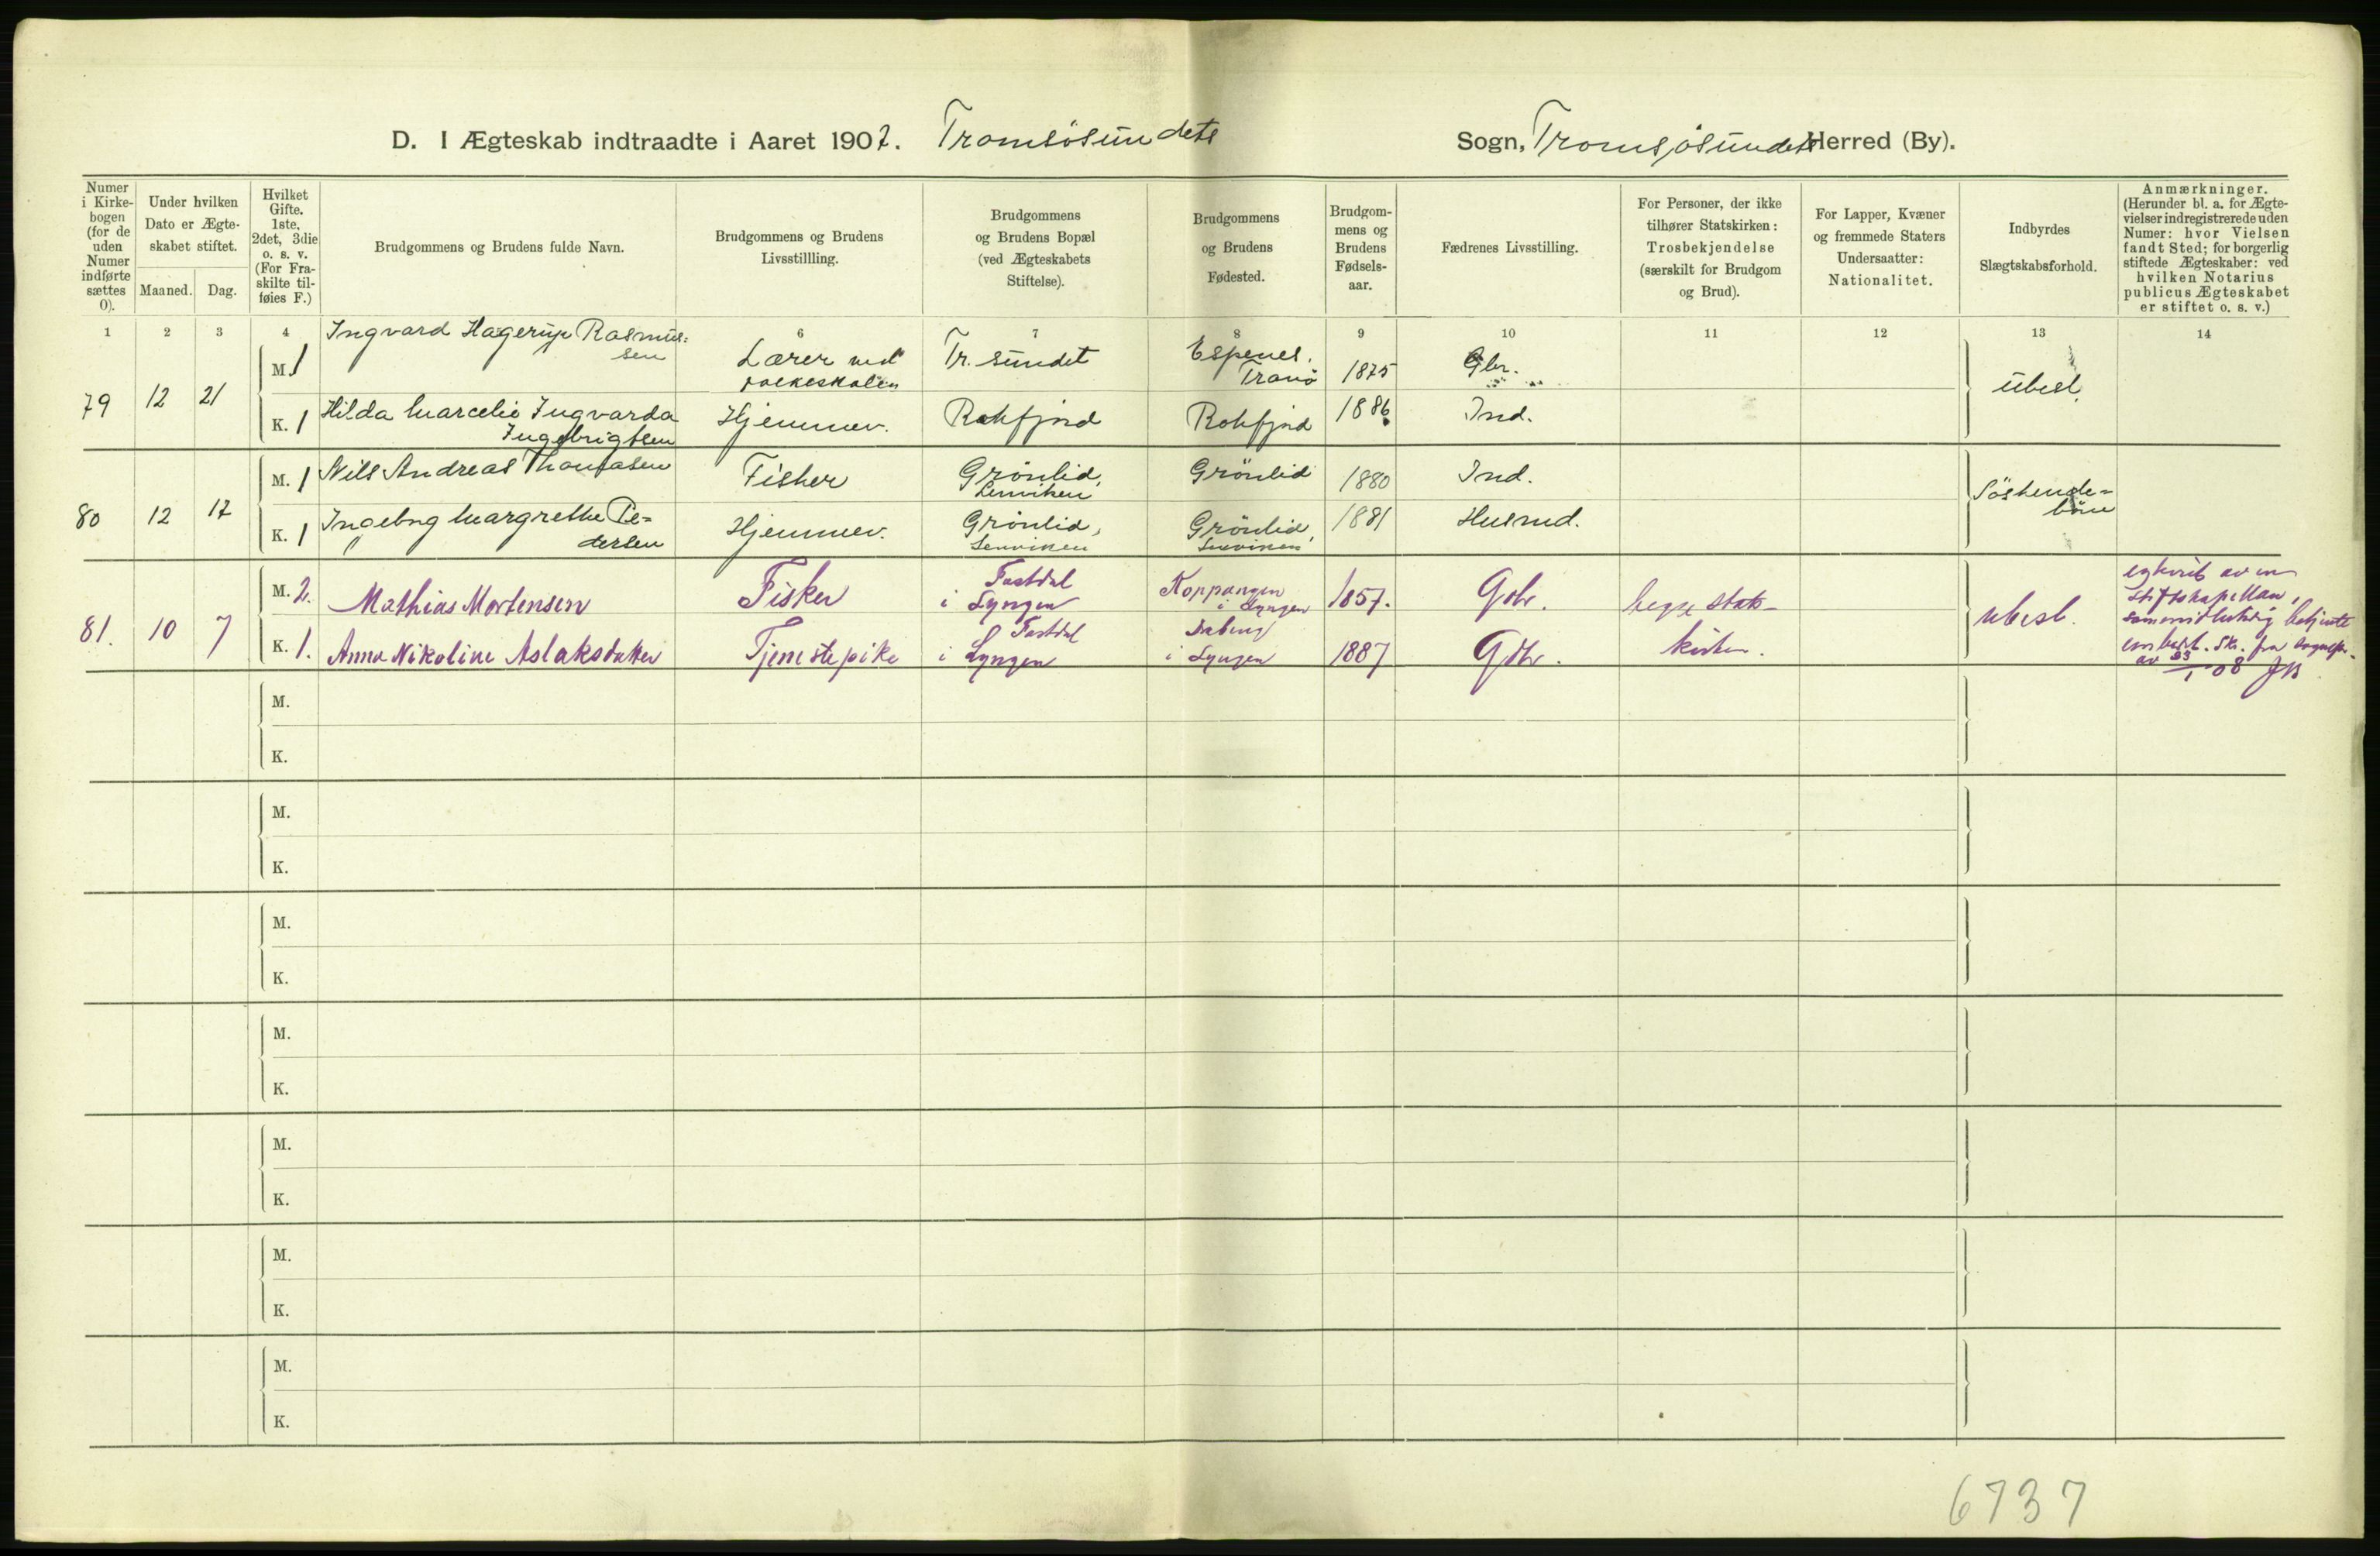 D. I Ægteskab indtraadte i Aaret 1907. Tromsösundets Sogn, Tromsösundets Herred (By).
Numer i Kirkebogen (for de uden Numer indførte sættes 0).
Under hvilken Dato er Ægteskabet stiftet.
Maaned. Dag.
Hvilket Gifte. 1ste, 2det, 3die o. s. v. (For Fraskilte tilføies F.)
Brudgommens og Brudens fulde Navn.
Brudgommens og Brudens Livsstillling.
Brudgommens og Brudens Bopæl (ved Ægteskabets Stiftelse).
Brudgommens og Brudens Fødested.
Brudgommens og Brudens Fødselsaar.
Fædrenes Livsstilling.
For Personer, der ikke tilhører Statskirken: Trosbekjendelse (særskilt for Brudgom og Brud).
For Lapper, Kvæner og fremmede Staters Undersaatter: Nationalitet.
Indbyrdes Slægtskabsforhold.
Anmærkninger. (Herunder bl. a. for Ægtevielser indregistrerede uden Numer: hvor Vielsen fandt Sted; for borgerlig stiftede Ægteskaber: ved hvilken Notarius publicus Ægteskabet er stiftet o. s. v.)
1 2 3 4 6 7 8 9 10 11 12 13 14
79 12 21
M. 1 Ingvard Hagerup Rasmus=
sen Lærer ved
folkeskolen Tr. sundet Espenes,
Tranö 1875 Gbr. ubesl.
K. 1 Hilda Marcelie Ingvarda
Ingebrigtsen Hjemmev. Rakfjord Rakfjord 1886 Ind.
80 12 17
M. 1 Nils Andreas Thomasen Fisker Grönlid,
Lenviken Grönlid 1880 Ind. Söskende=
börn
K. 1 Ingeborg Margrethe Pe=
dersen Hjemmev. Grönlid,
Lenviken Grönlid,
Lenviken 1881 Husmd.
81. 10 7
M. 2. Mathias Mortensen Fisker i Lyngen Koppangen
i Lyngen 1857. Gdbr. begge stats-
kirken. ubesl.
K. 1. Anna Nikoline Aslaksdatter Tjenestepike i Lyngen i Lyngen 1887 Gdbr.
av en
stiftskapellan,
som midlertidig betjente
fra sognepr.
av 23/1 08
M.
K.
M.
K.
M.
K.
M.
K.
M.
K.
M.
K.
M.
K.
6737